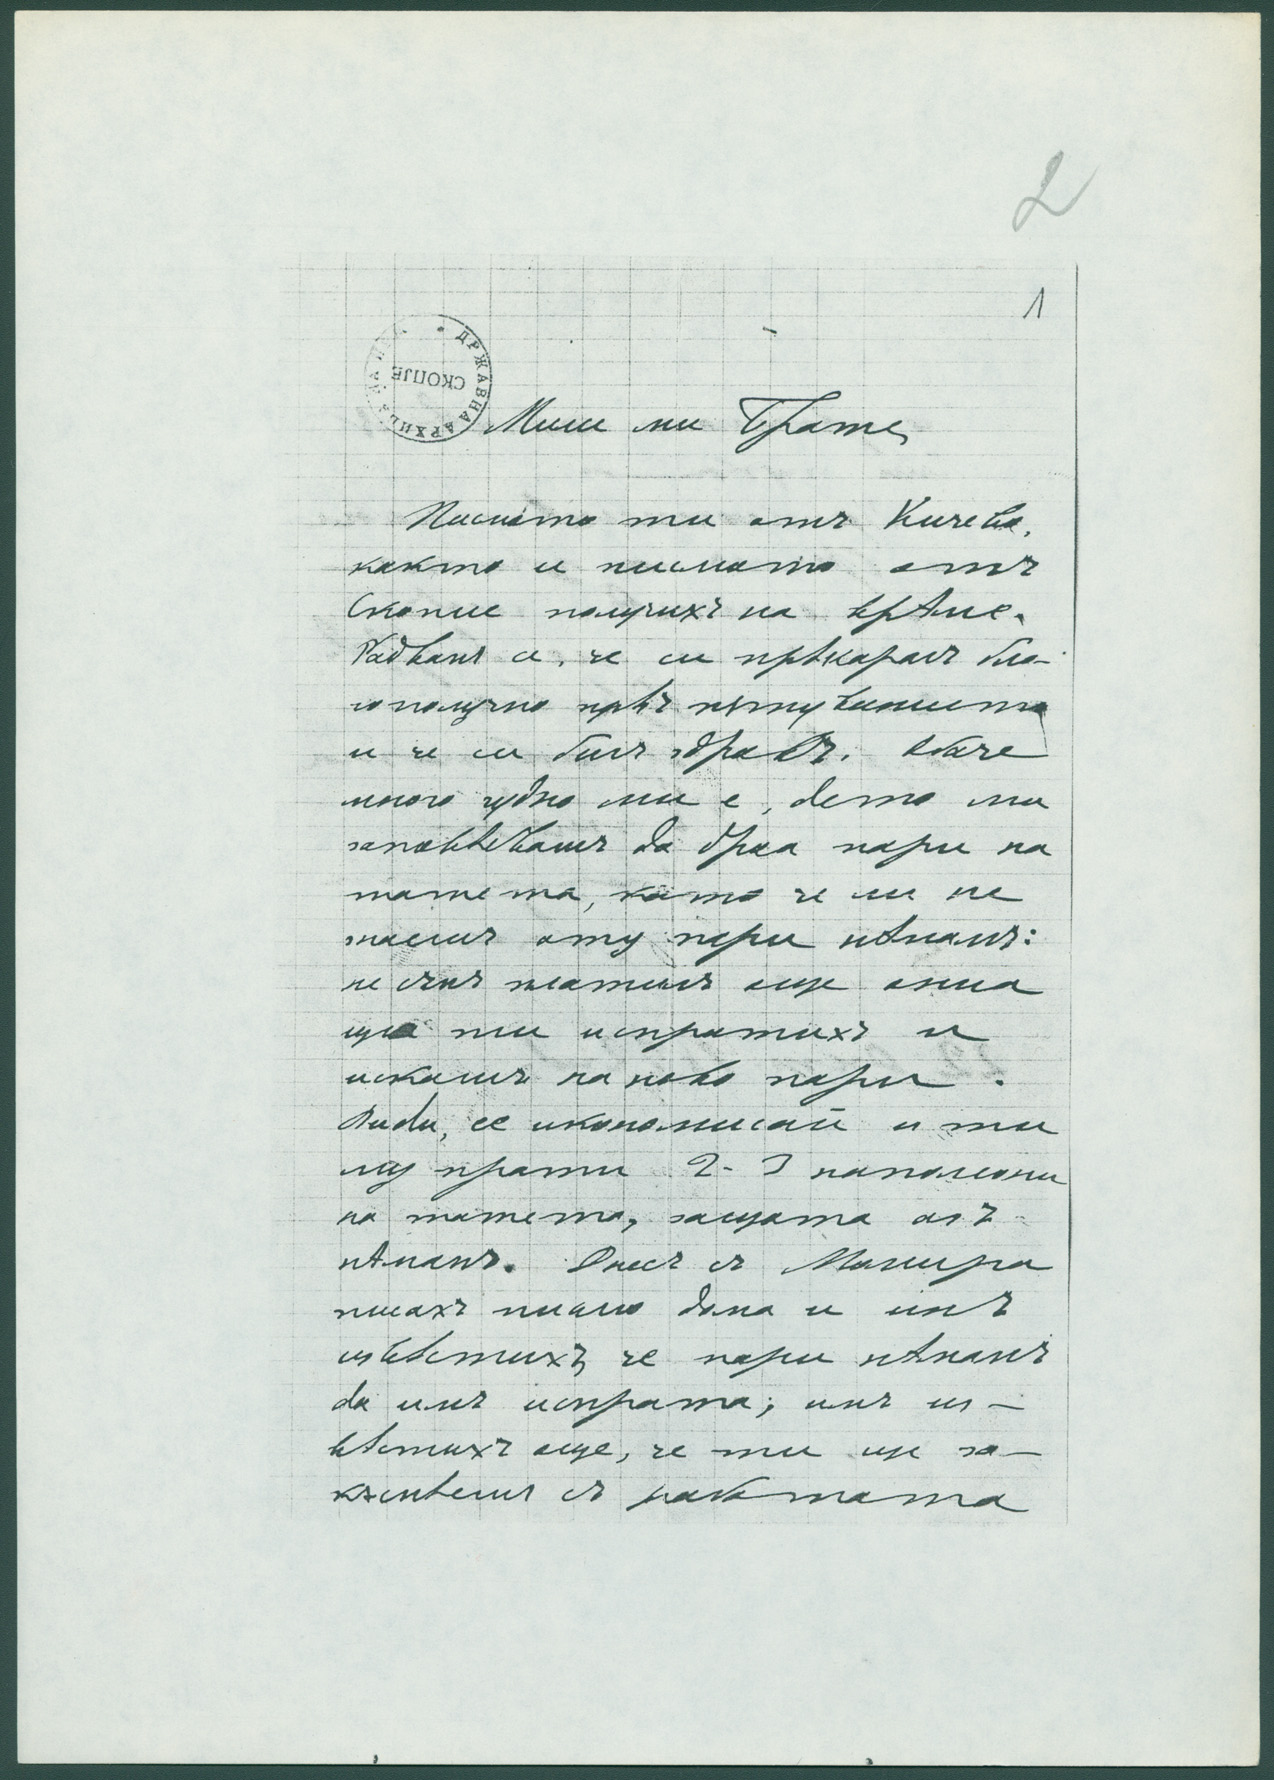 2
1
ДРЖАВНА АРХИВА
СКОПЈЕ
Мили ми Брате,
Писмото ти отъ Кичево,
както и писмото отъ
Скопие получихъ на врѣме.
Радвамъ се, че си прѣкаралъ бла-
гополучно прѣзъ пѫтуванието
и че си билъ здравъ. Обаче
много чудно ми е, дето ми
заповѣдвашъ да дркa пари на
татета, като че ли не
знаешъ оту пари нѣмамъ:
не съмъ платилъ още ония
що ти испратихъ и
искашъ на ново пари.
Види, се икономисай и ти
му прати 2-3 наполеони
на татета, защото азъ
нѣмамъ. Днесъ съ Мимира
писахъ писмо дома и имъ
извѣстихъ, че пари нѣмамъ
да имъ испратa; имъ из-
вѣстихъ още, че ти ще за-
къснѣешъ съ работата